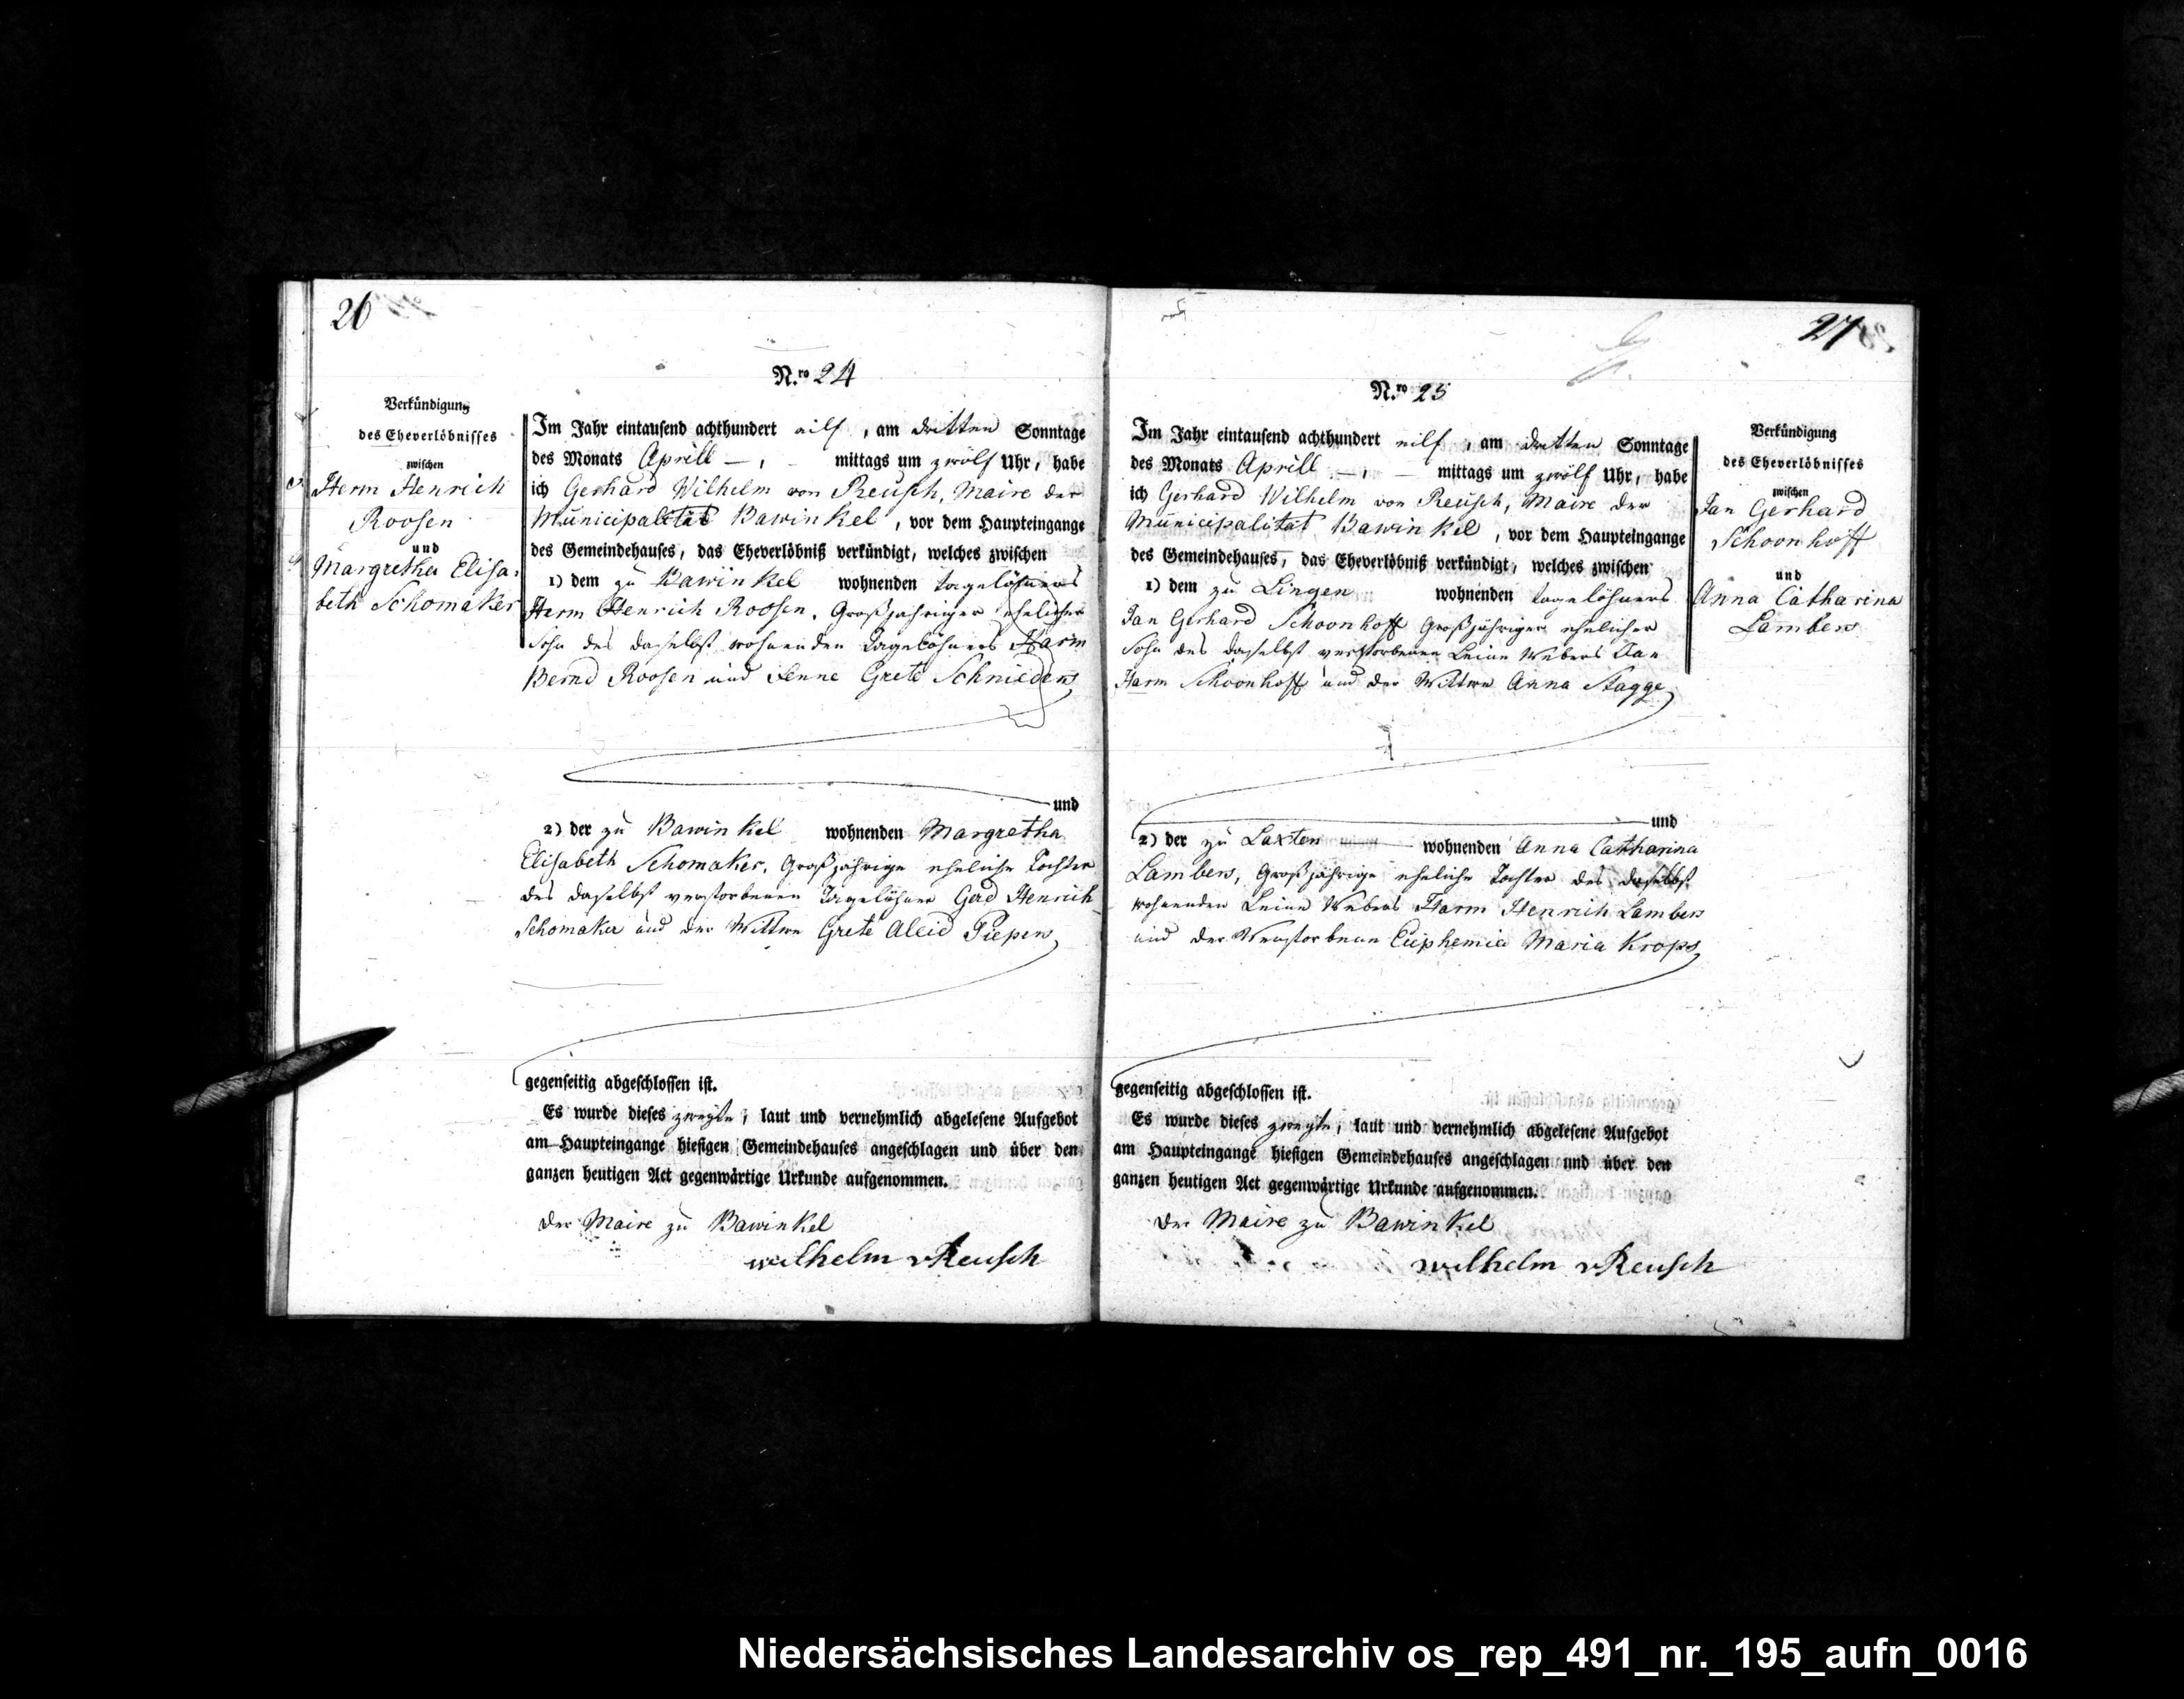 26
N.ro 24
Verkündigung
des Eheverlöbnisses
zwischen
Herm Henrich
Roosen
und
Margretha Elisa-
beth Schomaker
Im Jahr eintausend achthundert eilf, am dritten Sonntage
des Monats Aprill —, - mittags um zwölf Uhr, habe
ich Gerhard Wilhelm von Reusch, Maire der
Municipalität Bawinkel, vor dem Haupteingange
des Gemeindehauses, das Eheverlöbniß verkündigt, welches zwischen
1) dem zu Bawinkel wohnenden tagelöhners
Herm Henrich Roosen, Großjähriger ehelicher
Sohn des daselbst wohnenden Tagelöhners Harm
Bernd Roosen und Fenne Grete Schnieders
und
2) der zu Bawinkel wohnenden Margretha
Elisabeth Schomaker, Großjährige eheliche Tochter
des daselbst verstorbenen Tagelöhner Gerd Henrich
Schomaker und der Wittwe Grete Aleid Piepers
gegenseitig abgeschlossen ist.
Es wurde dieses zweyte, laut und vernehmlich abgelesene Aufgebot
am Haupteingange hiesigen Gemeindehauses angeschlagen und über den
ganzen heutigen Act gegenwärtige Urkunde aufgenommen.
Der Maire zu Bawinkel
wilhelm vReusch
27
N.ro 25
Im Jahr eintausend achthundert eilf, am dritten Sonntage
des Monats Aprill —, — mittags um zwölf Uhr, habe
ich Gerhard Wilhelm von Reusch, Maire der
Municipalität Bawinkel, vor dem Haupteingange
des Gemeindehauses, das Eheverlöbniß verkündigt, welches zwischen
1) dem zu Lingen wohnenden tagelöhners
Jan Gerhard Schoonhoff Großjähriger ehelicher
Sohn des daselbst verstorbenen Leine Webers Jan
Harm Schoonhoff und der Wittwe Anna Stagge
und
2) der zu Laxten wohnenden Anna Catharina
Lambers, Großjährige eheliche Tochter des daselbst
wohnenden Leine Webers Harm Henrich Lambers
und der Verstorbenen Euphemia Maria Krops
gegenseitig abgeschlossen ist.
Es wurde dieses zweyte, laut und vernehmlich abgelesene Aufgebot
am Haupteingange hiesigen Gemeindehauses angeschlagen und über den
ganzen heutigen Act gegenwärtige Urkunde aufgenommen.
Der Maire zu Bawinkel
wilhelm vReusch
Verkündigung
des Eheverlöbnisses
zwischen
Jan Gerhard
Schoonhoff
und
Anna Catharina
Lambers
Niedersächsisches Landesarchiv os_rep_491_nr._195_aufn_0016